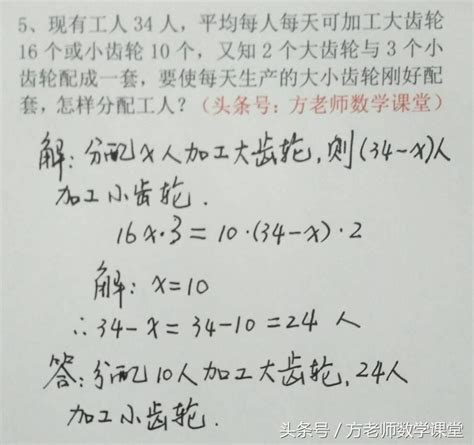 5、现有工人 34 人，平均每人每天可加工大齿轮
16 个或小齿轮 10 个，又知 2 个大齿轮与 3 个小
齿轮配成一套，要使每天生产的大小齿轮刚好配
套，怎样分配工人？（头条号：方老师数学课堂）
解：分配x人加工大齿轮，则(34-x)人
加工小齿轮.
16x·3=10·(34-x)·2
解：x=10
∴34-x=34-10=24 人
答：分配10人加工大齿轮，24人
加工小齿轮.
头条号 / 方老师数学课堂